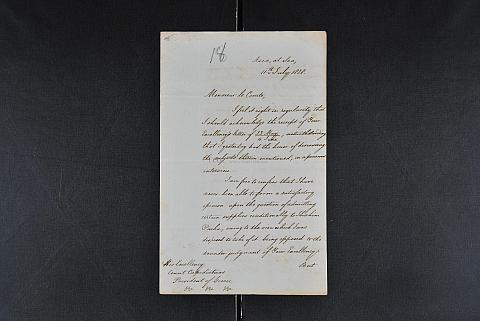 18
at Sea,
11th July 1828.
Monsieur le Comte,
I feel it right in regularity that
I should acknowledge the receipt of Your
Excellency's letter of
that I yesterday had the honor of discussing
the subjects therein mentioned, in a personal
interview.
I am free to confess that I have
never been able to form a satisfactory
opinion upon the question of admitting
certain supplies conditionally to Ibrahim
Pacha, owing to the view which I was
disposed to take of it being opposed to the
sounder judgment of Your Excellency.
But
His Excellency
Count Capodistrias
President of Greece
&c &c &c